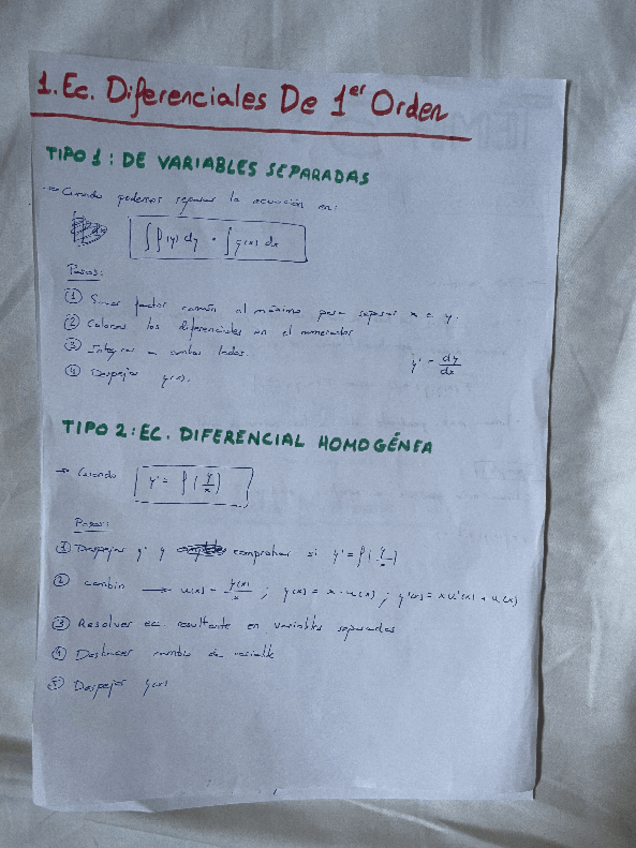 1. Ec. Diferenciales De 1er Orden
TIPO 1: DE VARIABLES SEPARADAS
→ Cuando podemos separar la ecuación en:
∫ f(y) dy = ∫ g(x) dx
Pasos:
① Sacar factor común al máximo para separar x e y.
② Colocar los diferenciales en el numerador
③ Integrar a ambos lados.
y' = dy/dx
④ Despejar y(x).
TIPO 2: EC. DIFERENCIAL HOMOGÉNEA
→ Cuando y' = f(y/x)
Pasos:
① Despejar y' y comprobar si y' = f(y/x)
② cambio → u(x) = y(x)/x ; y(x) = x · u(x) ; y'(x) = x u'(x) + u(x)
③ Resolver ec. resultante en variables separadas
④ Deshacer cambio de variable
⑤ Despejar y(x)